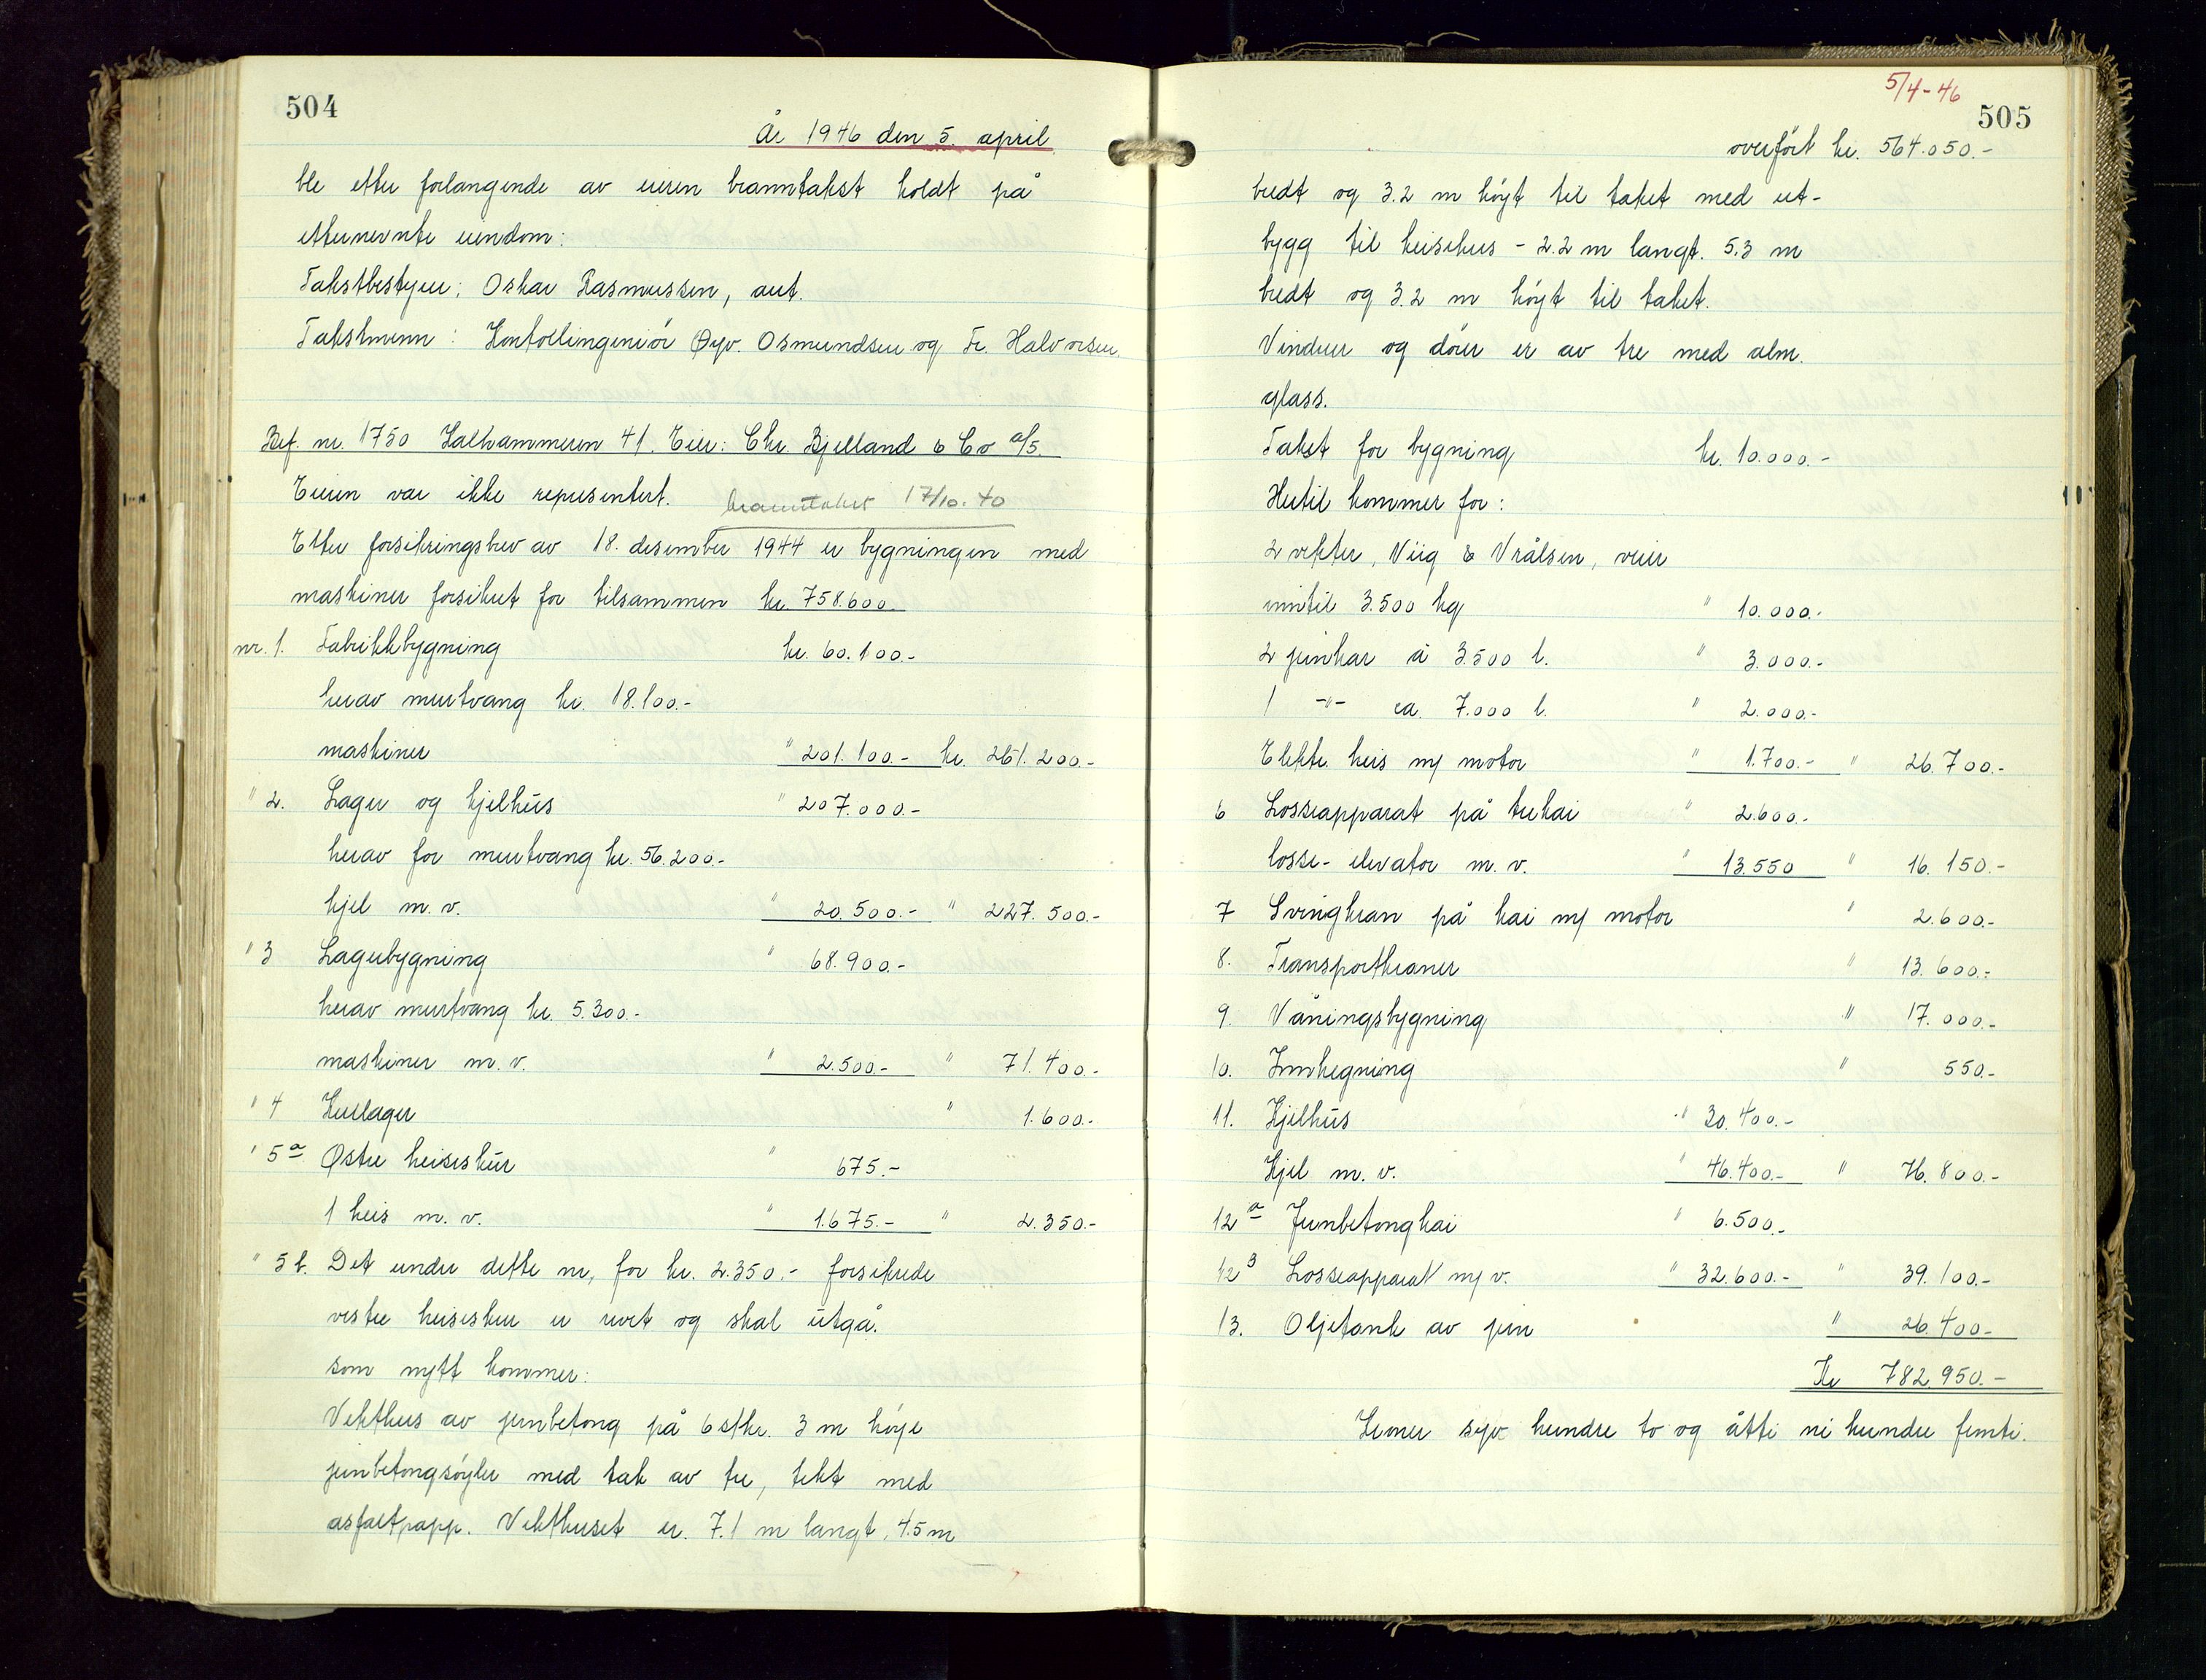 504
År 1946 den 5. april
ble etter forlangende av eieren branntakst holdt på
etternevnte eiendom:
Takstbestyrer: Oskar Rasmussen, aut.
Takstmenn: Kontrollingeniør Øyv. Osmundsen og Fr. Halvorsen.
Bef. nr. 1750 Kalhammeren 41. Eier: Chr. Bjelland & Co a/s.
Eieren var ikke representert. branntakst 17/10. 40
Etter forsikringsbrev av 18. desember 1944 er bygningen med
maskiner forsikret for tilsammen kr. 758.600.
nr. 1. Fabrikkbygning kr. 60.100.-
herav murtvang kr. 18.100.-
maskiner " 201.100.- kr. 261.200.-
" 2. Lager og kjelhus " 207.000.-
herav for murtvang kr. 56.200.-
kjel m.v. " 20.500.- " 227.500.-
" 3 Lagerbygning " 68.900.-
herav murtvang kr. 5.300.-
maskiner m.v. " 2.500.- " 71.400.-
" 4 Kullager " 1.600.-
" 5a Østre heiseskur " 675.-
1 heis m.v. " 1.675.- " 2.350.-
" 5 b. Det under dette nr, for kr. 2.350.- forsikrede
vestre heiseskur er revet og skal utgå.
som nytt kommer:
Vekthus av jernbetong på 6 stkr. 3 m høye
jernbetongsøyler med tak av tre, tekt med
asfaltpapp. Vekthuset er 7.1 m langt, 4.5 m
5/4-46
505
overført kr. 564.050.-
bredt og 3.2 m høyt til taket med ut-
bygg til heisehus - 2.2 m langt. 5.3 m
bredt og 3.2 m høyt til taket.
Vinduer og dører er av tre med alm.
glass.
Takst for bygning kr. 10.000.-
Hertil kommer for:
2 vekter, Viig & Vrålsen, veier
inntil 3.500 kg " 10.000.-
2 jernkar à 3.500 l. " 3.000.-
1 -"- ca. 7.000 l. " 2.000.-
Elektr. heis m/ motor " 1.700.- " 26.700.-
6 Losseapparat på trekai " 2.600.-
losse-elevator m.v. " 13.550 " 16.150.-
7 Svingkran på kai m/ motor " 2.600.-
8. Transportkraner " 13.600.-
9. Våningsbygning " 17.000.-
10. Innhegning " 550.-
11. Kjelhus " 30.400.-
Kjel m.v. " 46.400.- " 76.800.-
12a Jernbetongkai " 6.500.-
12 3 Losseapparat m/ v. " 32.600.- " 39.100.-
13. Oljetank av jern " 26.400.-
Kr 782.950.-
Kroner syv hundre to og åtti ni hundre femti.